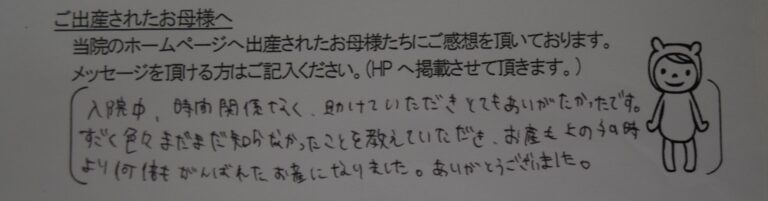 ご出産されたお母様へ
当院のホームページへ出産されたお母様たちにご感想を頂いております。
メッセージを頂ける方はご記入ください。(HPへ掲載させて頂きます。)
入院中、時間関係なく、助けていただきとてもありがたかったです。
すごく色々まだまだ知らなかったことを教えていただき、お産も上の子の時
より何倍もがんばれたお産になりました。ありがとうございました。